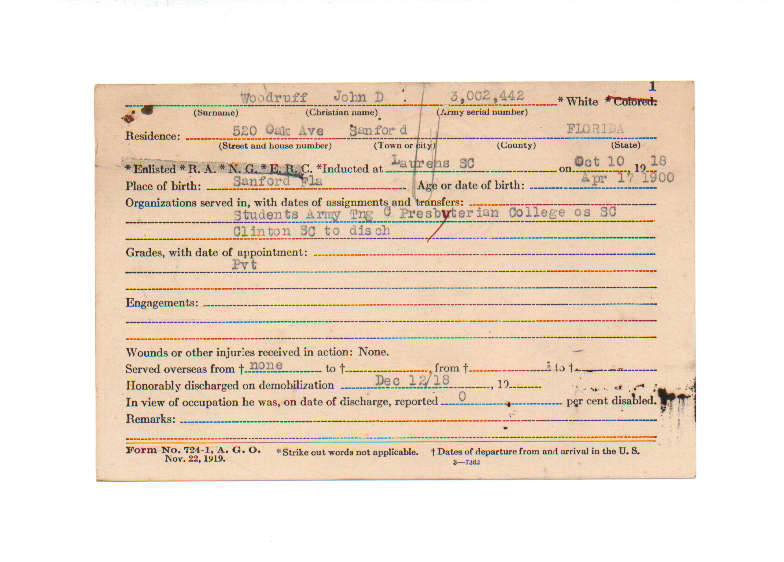 1
Woodruff John D 3,002,442 * White * Colored.
(Surname) (Christian name) (Army serial number)
Residence: 520 Oak Ave Sanford FLORIDA
(Street and house number) (Town or city) (County) (State)
* Enlisted * R. A. * N. G. * E. R. C. *Inducted at Laurens SC on Oct 10, 1918
Place of birth: Sanford Fla Age or date of birth: Apr 17 1900
Organizations served in, with dates of assignments and transfers:
Students Army Tng C Presbyterian College os SC
Clinton SC to disch
Grades, with date of appointment:
Pvt
Engagements:
Wounds or other injuries received in action: None.
Served overseas from † none to †, from † to †
Honorably discharged on demobilization Dec 12/18, 19
In view of occupation he was, on date of discharge, reported 0 per cent disabled.
Remarks:
Form No. 724-1, A. G. O. *Strike out words not applicable. † Dates of departure from and arrival in the U. S.
Nov. 22, 1919. 3—7362